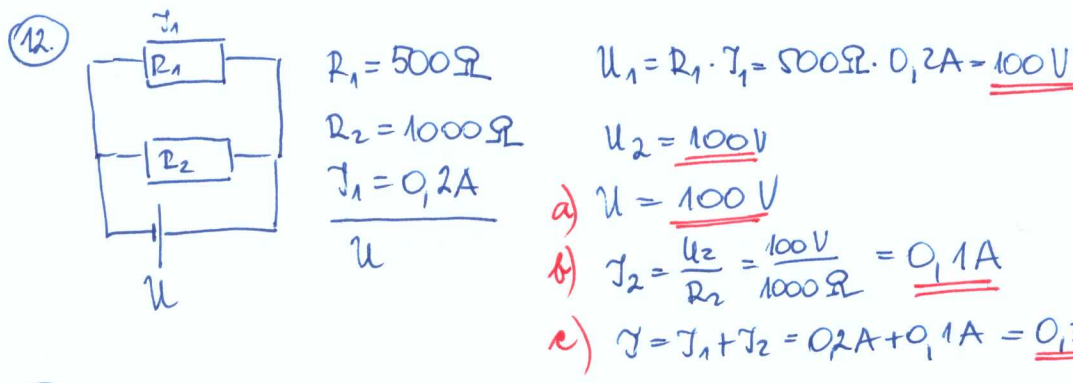 12.
I₁
R₁
R₂
U
R₁ = 500 Ω
R₂ = 1000 Ω
I₁ = 0,2A
U
U₁ = R₁ · I₁ = 500 Ω · 0,2A = 100 V
U₂ = 100V
a) U = 100 V
b) I₂ = U₂/R₂ = 100 V/1000 Ω = 0,1A
c) I = I₁ + I₂ = 0,2A + 0,1A = 0,